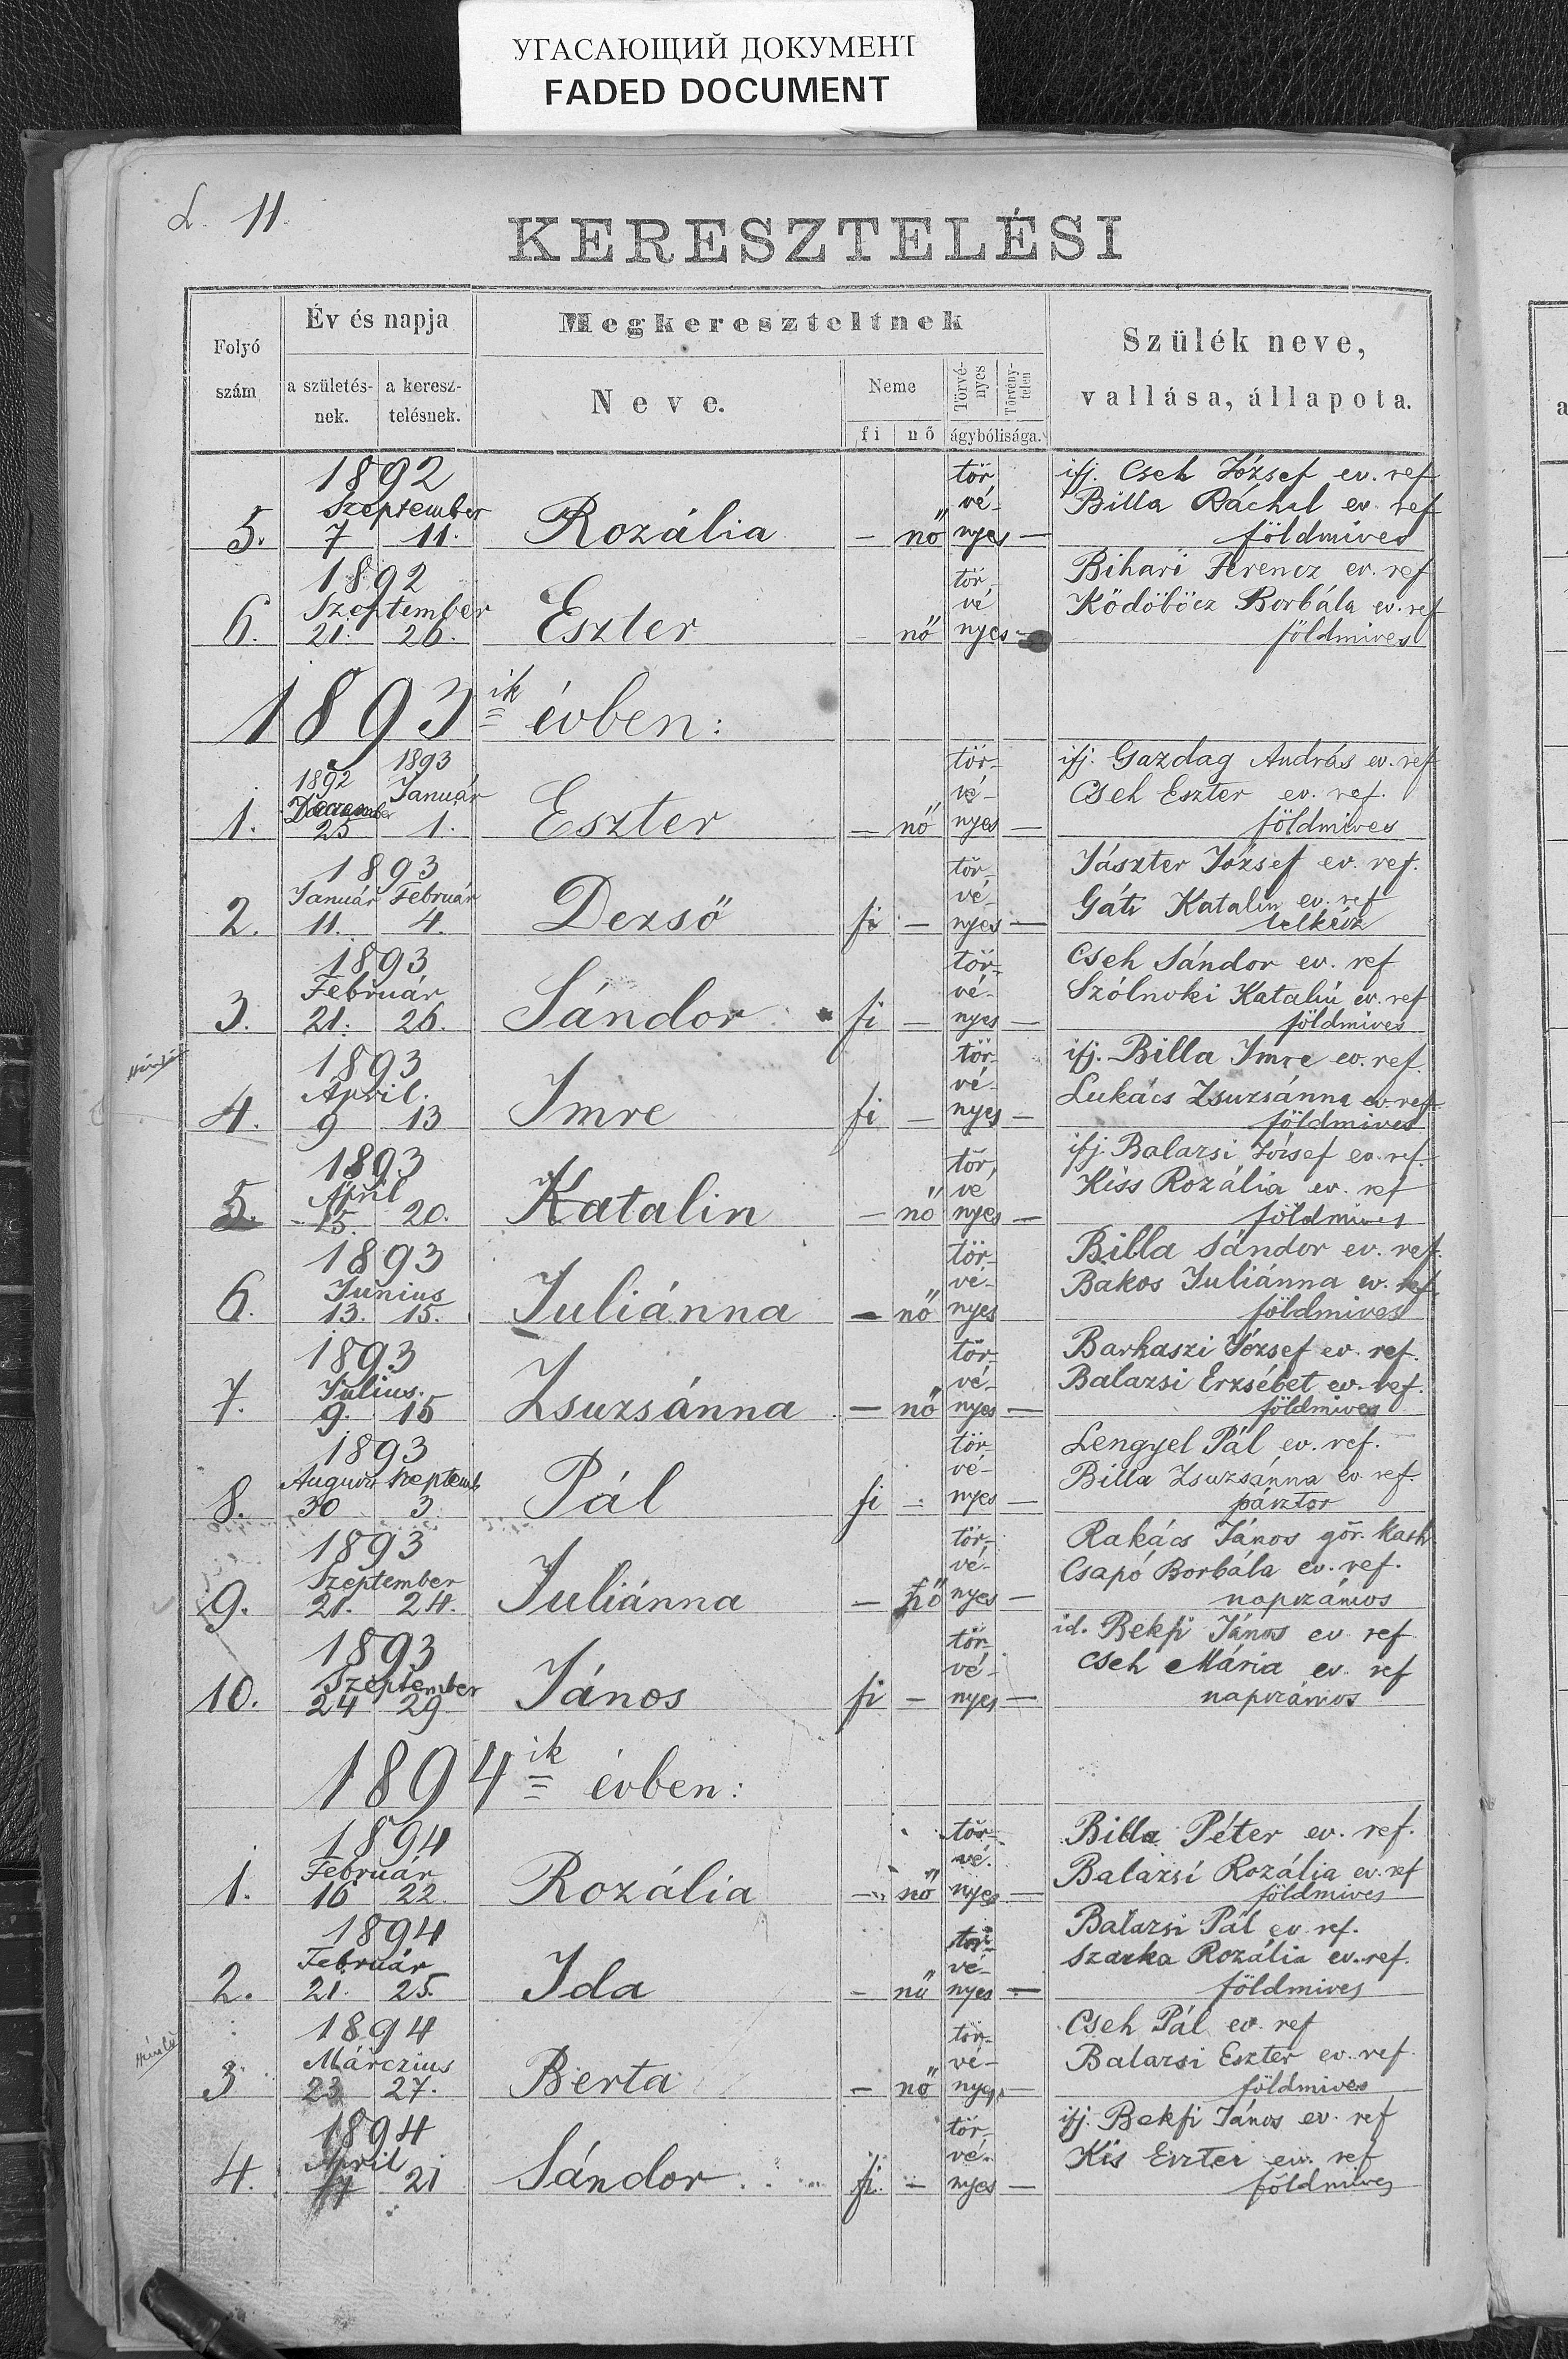 УГАСАЮЩИЙ ДОКУМЕНТ
FADED DOCUMENT
L. 11.
KERESZTELÉSI
Folyó szám
Év és napja
a születés-nek.
a keresz-telésnek.
Megkereszteltnek
Neve.
Neme
fi nő
Törvé-nyes
Törvény-telen
ágybólisága.
Szülék neve,
vallása, állapota.
1892 tör ifj. Cseh József ev. ref.
Szeptember vé- Billa Ráchel ev. ref
5. 7 11. Rozália — nő nyes — földmives
1892 tör- Bihari Ferencz ev. ref
Szeptember vé Ködöböcz Borbála ev. ref
6. 21. 26. Eszter — nő nyes — földmives
1893 ik évben:
1892 1893 tör- ifj. Gazdag András ev. ref
December Január vé- Cseh Eszter ev. ref.
1. 25 1. Eszter — nő nyes — földmives
1893 tör- Jászter József ev. ref.
Január Február vé- Gáti Katalin ev. ref
2. 11. 4. Dezső fi — nyes — lelkész
1893 tör- Cseh Sándor ev. ref
Február vé- Szólnoki Katalin ev. ref
3. 21. 26. Sándor fi — nyes — földmives
1893 tör- ifj. Billa Imre ev. ref.
April. vé- Lukács Zsuzsánna ev. ref.
4. 9 13 Imre fi — nyes — földmives
1893 tör, ifj. Balazsi József ev. ref.
April vé Kiss Rozália ev. ref
5. 15. 20. Katalin — nő nyes — földmives
1893 tör- Billa Sándor ev. ref.
Junius vé- Bakos Juliánna ev. ref.
6. 13. 15. Juliánna — nő nyes földmives
1893 tör- Barkaszi József ev. ref.
Julius. vé- Balazsi Erzsébet ev. ref.
7. 9. 15 Zsuzsánna — nő nyes — földmives
1893 tör- Lengyel Pál ev. ref.
August Septemb vé- Billa Zsuzsánna ev. ref.
8. 30 3. Pál fi — nyes — pásztor
1893 tör- Rakács János gör. kath.
Szeptember vé- Csapó Borbála ev. ref.
9. 21. 24. Juliánna — nő nyes — napszámos
1893 tör- id. Bekfi János ev. ref
Szeptember vé- Cseh Mária ev. ref
10. 24 29. János fi — nyes — napszámos
1894 ik évben:
1894 tör- Billa Péter ev. ref.
Február vé. Balazsi Rozália ev. ref
1. 16 22. Rozália — nő nyes — földmives
1894 tör- Balazsi Pál ev. ref.
Február vé- Szarka Rozália ev. ref.
2. 21. 25. Ida — nő nyes — földmives
1894 tör- Cseh Pál ev. ref
Márczius vé- Balazsi Eszter ev. ref.
3 23 27. Berta — nő nyes — földmives
1894 tör- ifj. Bekfi János ev. ref
April vé- Kis Eszter ev. ref
4. 21 Sándor fi — nyes — földmives